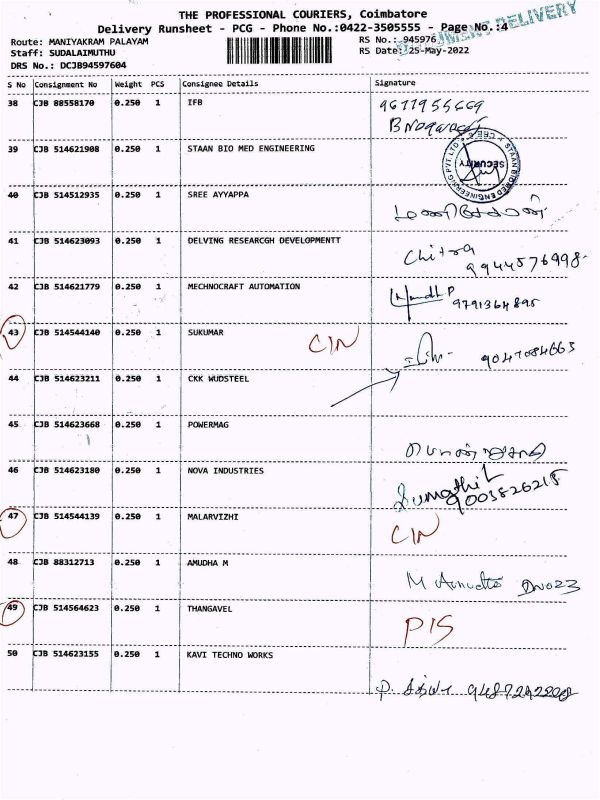 THE PROFESSIONAL COURIERS, Coimbatore
Delivery Runsheet - PCG - Phone No.:0422-3505555 - Page No.:4
DOCUMENT DELIVERY
Route: MANIYAKRAM PALAYAM RS No.: 945976
Staff: SUDALAIMUTHU RS Date: 25-May-2022
DRS No.: DCJB94597604
S No Consignment No Weight PCS Consignee Details Signature
38 CJB 88558170 0.250 1 IFB
39 CJB 514621908 0.250 1 STAAN BIO MED ENGINEERING
SECURITY
40 CJB 514512935 0.250 1 SREE AYYAPPA
41 CJB 514623093 0.250 1 DELVING RESEARCGH DEVELOPMENTT Chitra
9944576998
42 CJB 514621779 0.250 1 MECHNOCRAFT AUTOMATION
9791364895
43 CJB 514544140 0.250 1 SUKUMAR CIN
9047084663
44 CJB 514623211 0.250 1 CKK WUDSTEEL
45 CJB 514623668 0.250 1 POWERMAG
46 CJB 514623180 0.250 1 NOVA INDUSTRIES Sumathi L
9003826218
47 CJB 514544139 0.250 1 MALARVIZHI CIN
48 CJB 88312713 0.250 1 AMUDHA M
49 CJB 514564623 0.250 1 THANGAVEL PIS
50 CJB 514623155 0.250 1 KAVI TECHNO WORKS